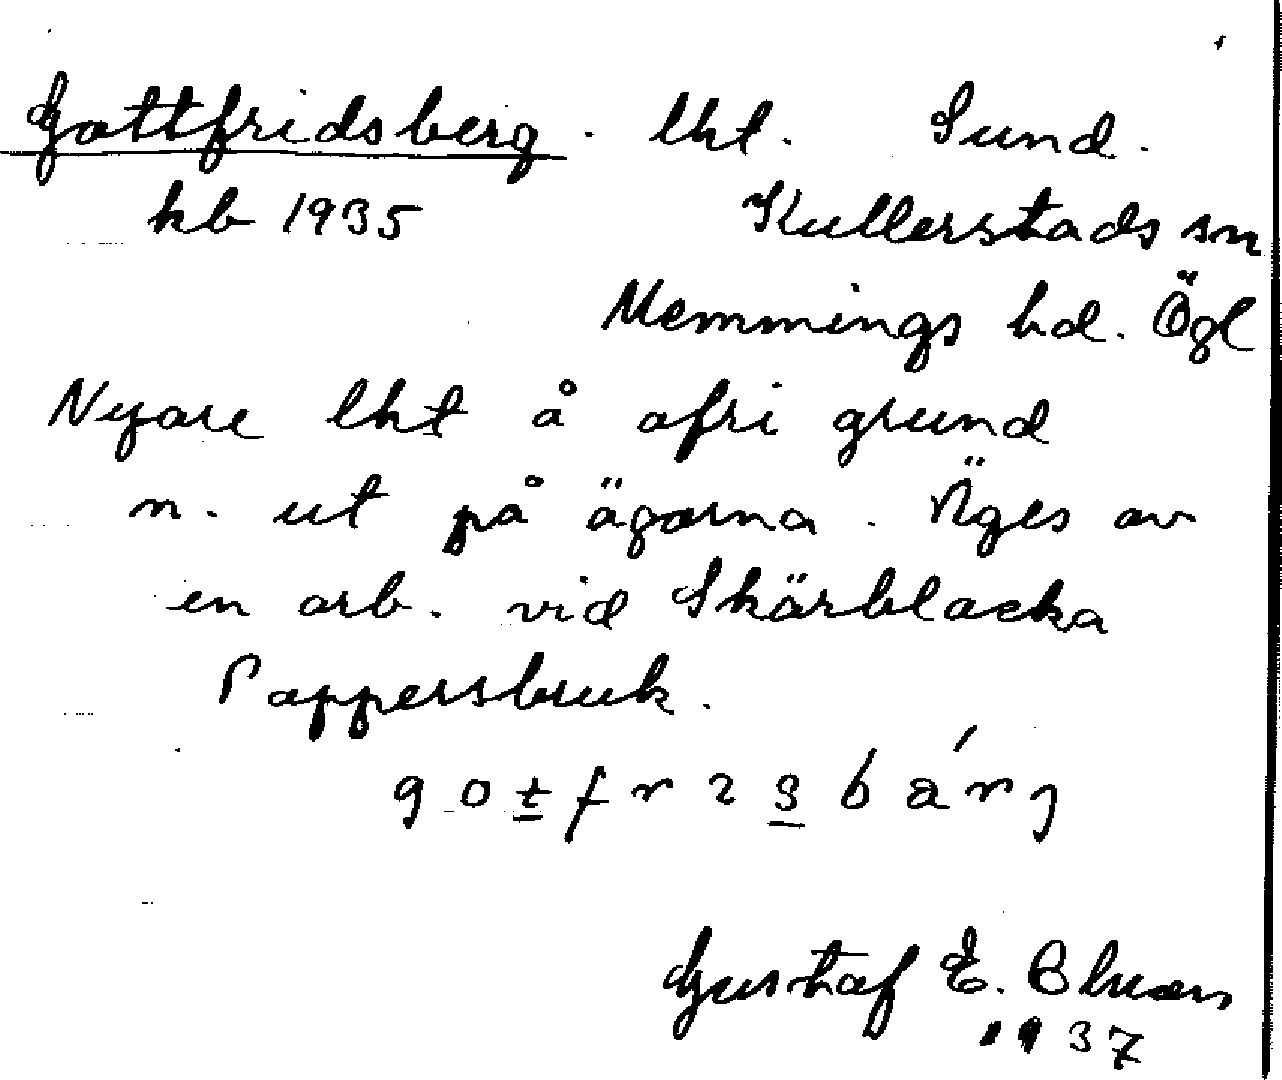 Gottfridsberg. lht. Sund.
kb 1935 Kullerstads sn
Memmings hd. Ögl
Nyare lht å ofri grund
n. ut på ägorna. Äges av
en arb. vid Skärblacka
Pappersbruk.
gotfr2sbárg
Gustaf E.
1937